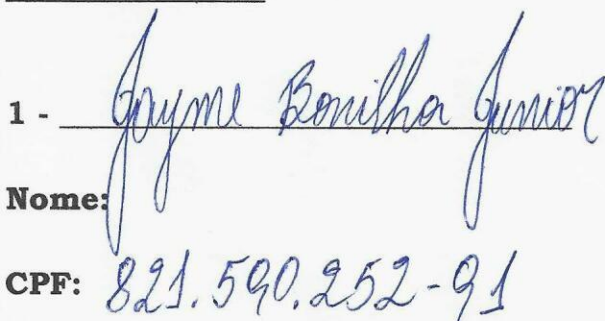 1 - Jayme Bonilha Junior
Nome:
CPF: 821.590.252-91